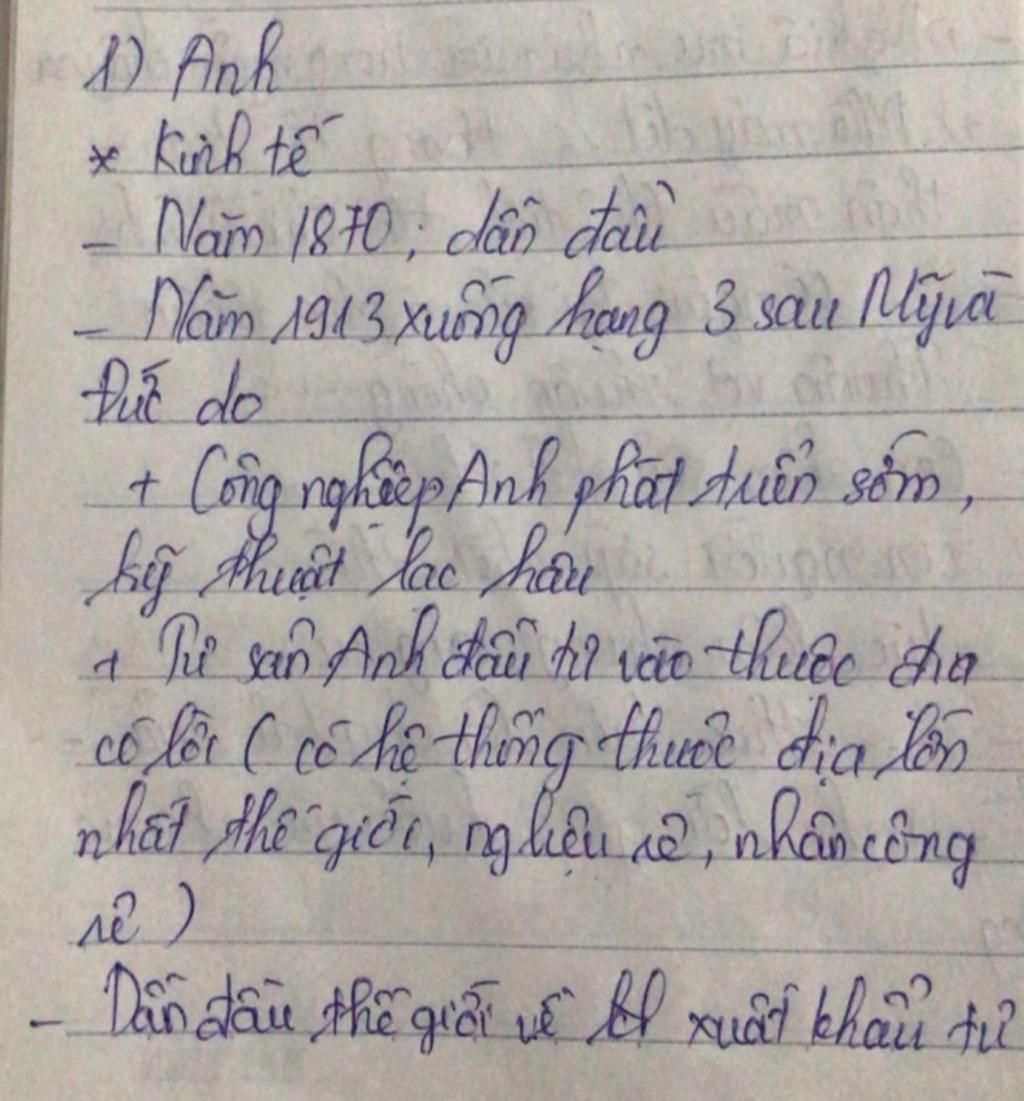 1) Anh
* Kinh tế
- Năm 1870; dẫn đầu
- Năm 1913 xuống hạng 3 sau Mỹ và
Đức do
+ Công nghiệp Anh phát triển sớm,
kỹ thuật lạc hậu
+ Tư sản Anh đầu tư vào thuộc địa
có lời ( có hệ thống thuộc địa lớn
nhất thế giới, ng liệu rẻ, nhân công
rẻ )
- Dẫn đầu thế giới về xuất khẩu tư